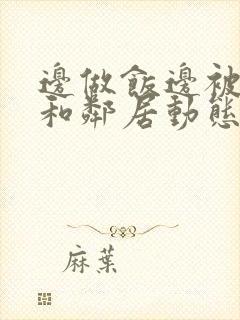 邊做飯邊被
和鄰居動態
麻葉